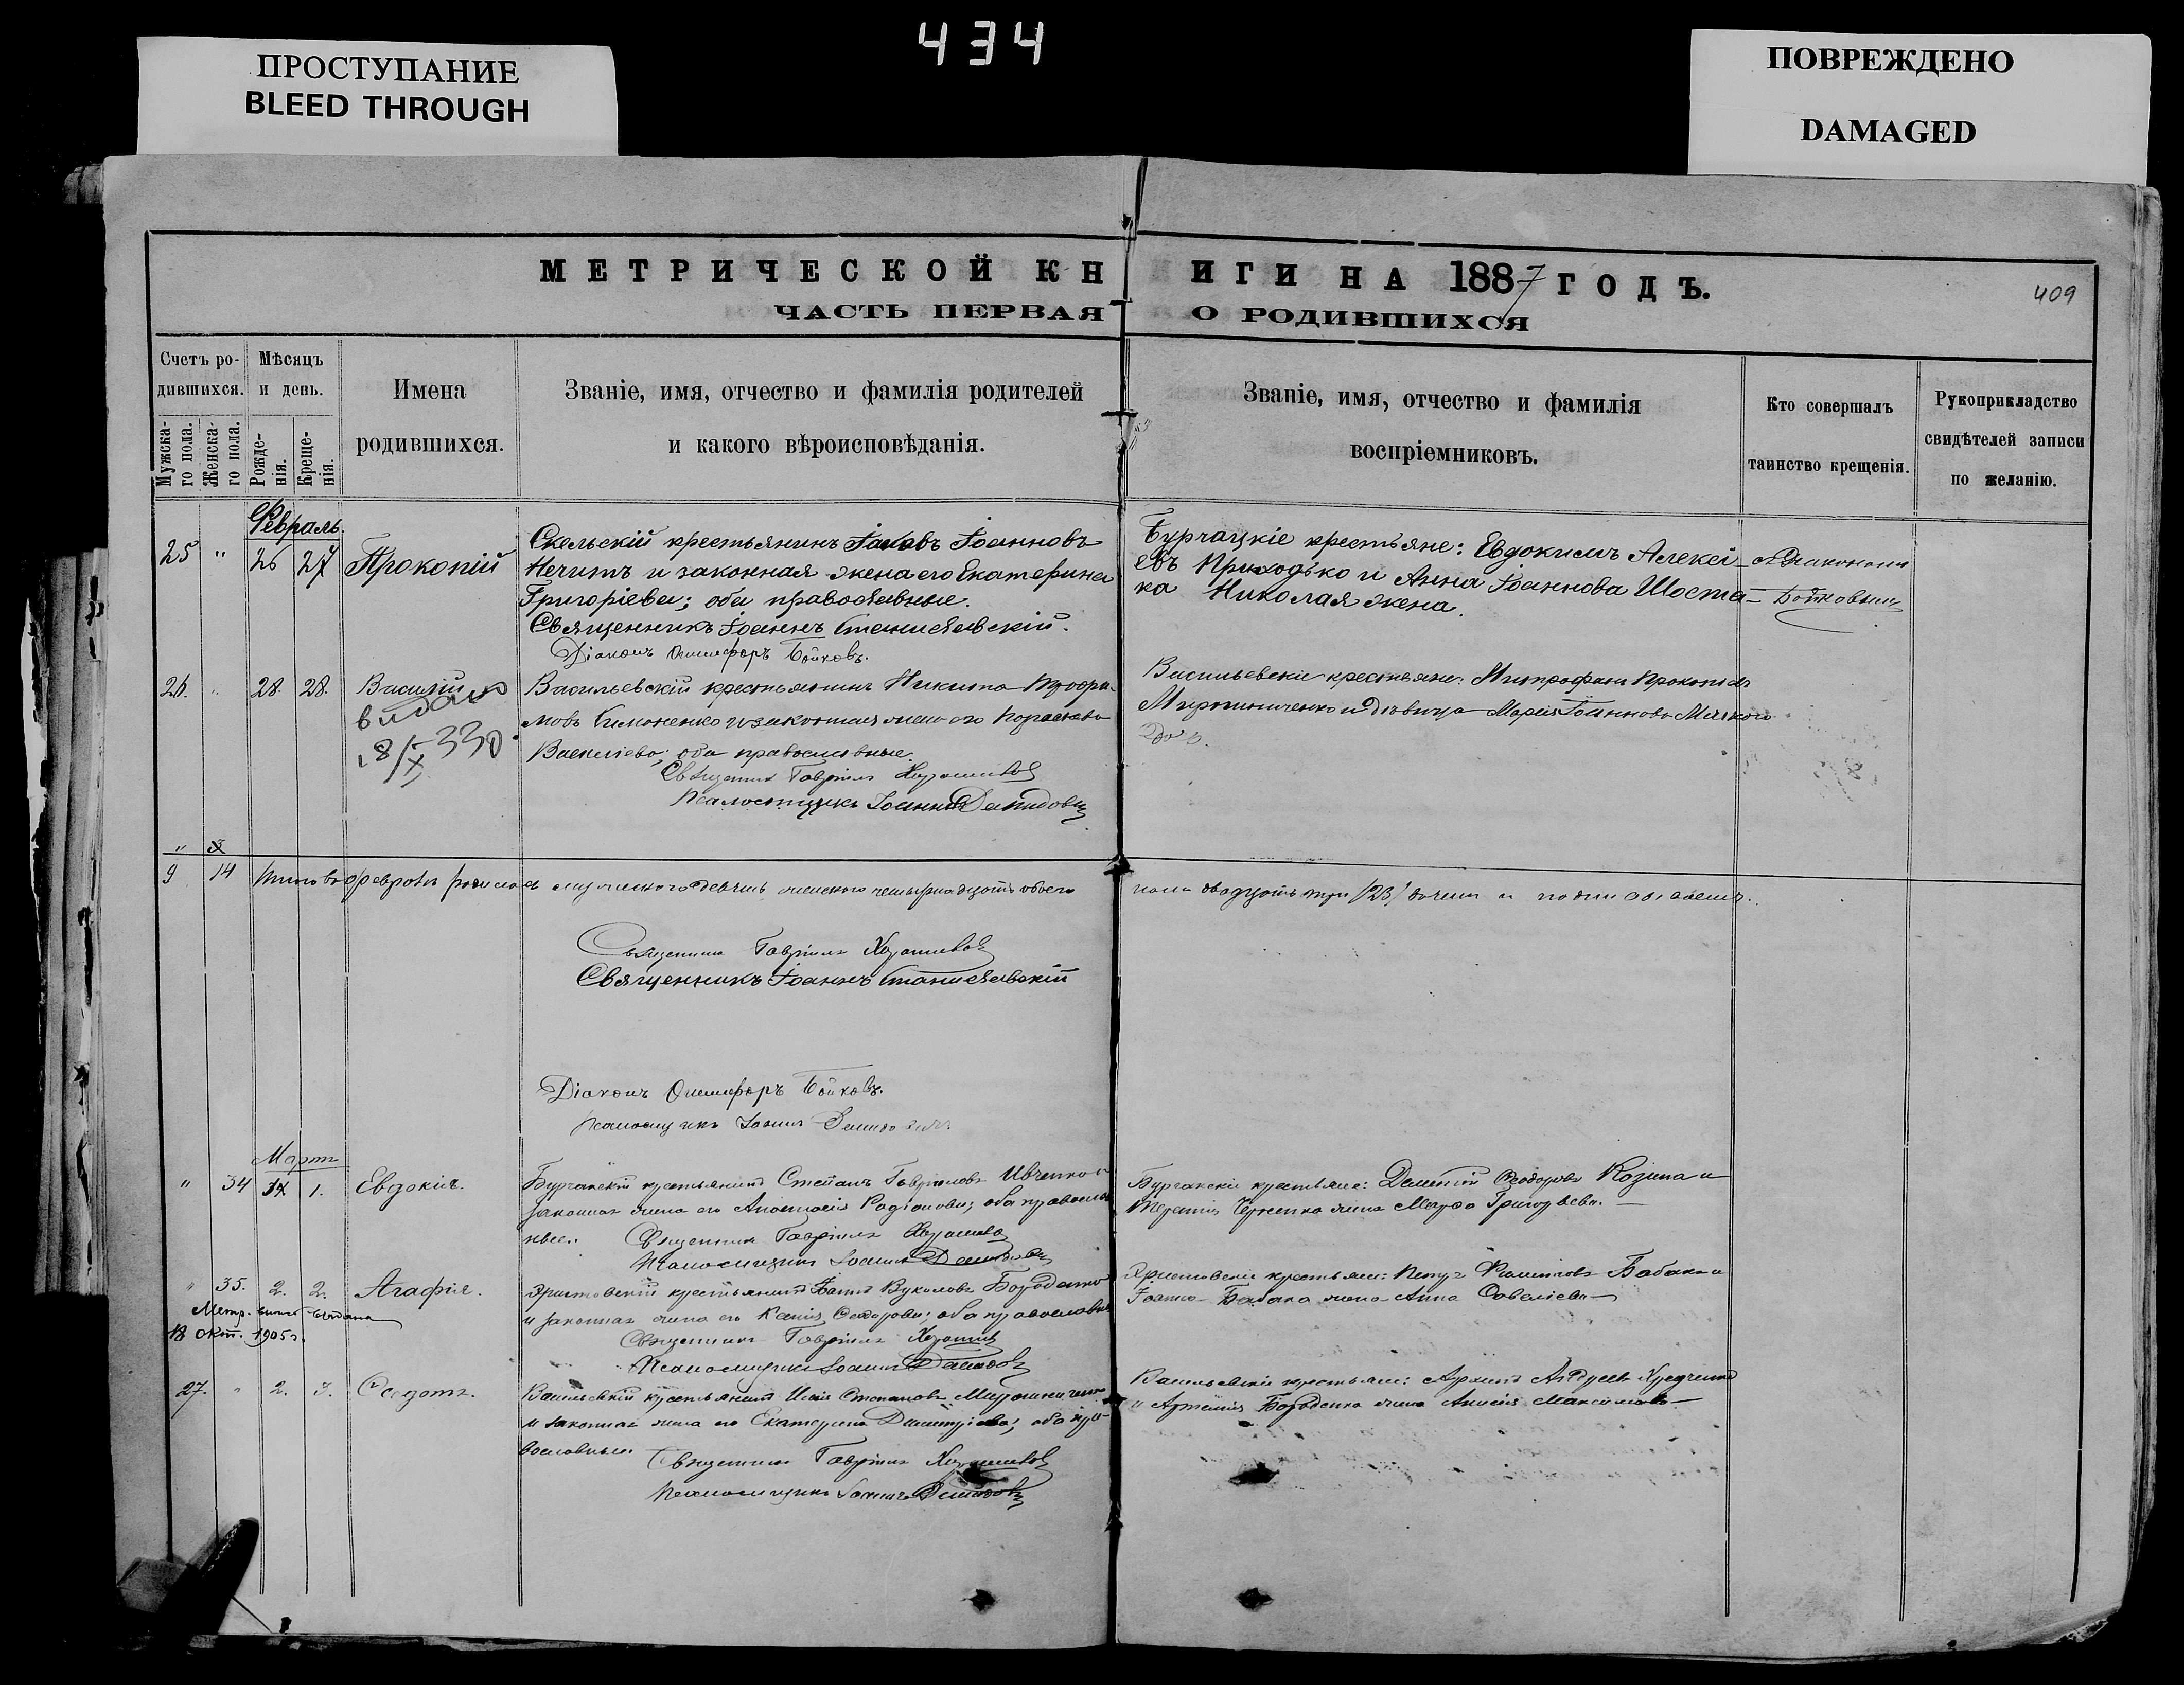 434
ПРОСТУПАНИЕ
BLEED THROUGH
ПОВРЕЖДЕНО
DAMAGED
МЕТРИЧЕСКОЙ КНИГИ НА 1887 ГОДЪ.
409
ЧАСТЬ ПЕРВАЯ О РОДИВШИХСЯ
Счетъ родившихся.
Мужскаго пола.
Женскаго пола.
Мѣсяцъ и день.
Рожденія.
Крещенія.
Имена
родившихся.
Званіе, имя, отчество и фамилія родителей
и какого вѣроисповѣданія.
Званіе, имя, отчество и фамилія
воспріемниковъ.
Кто совершалъ
таинство крещенія.
Рукоприкладство
свидѣтелей записи
по желанію.
Февраль.
25 " 26 27 Прокопій
Скельскій крестьянинъ Іаковъ Іоанновъ
Нечитъ и законная жена его Екатерина
Григоріева; оба православные.
Священникъ Іоаннъ Станиславскій.
Діаконъ Онисифоръ Бойковъ.
Бурчацкіе крестьяне: Евдокимъ Алексі-
евъ Приходько и Анна Іоаннова Шоста-
ка Николая жена.
Бойковым
26. " 28. 28. Василій
видано
18/X 330
Васильевскій крестьянинъ Никита
Тимоненко и законная жена его
Василіева; оба православные.
Священникъ Гавріилъ
Псаломщикъ Іоаннъ Демидовъ
Васильевскіе крестьяне: Митрофанъ Прокопіевъ
Мирошниченко и дѣвица Марія Іоаннова
" 3
9 14 Итого въ февралѣ родилось мужского девять женского четырнадцать обоего
пола двадцать три (23)
Священникъ Гавріилъ
Священникъ Іоаннъ Станиславскій
Діаконъ Онисифоръ Бойковъ.
Псаломщикъ Іоаннъ
Мартъ
" 34 1. Евдокія.
Бурчакскій крестьянинъ Стефанъ Гавріиловъ Ивченко и
законная жена его Анастасія Родіонова; оба православ
ные.
Священникъ Гавріилъ
Псаломщикъ Іоаннъ
Бурчакскіе крестьяне: Дементій Ѳеодоровъ Козина и
Терентія жена Марѳа Григорьева.
" 35. 2. 2. Агафія.
Метр. выпись выдана
18 окт. 1905 г.
крестьянинъ Іоаннъ Вуколовъ Бороденко
и законная жена его Ксенія Ѳеодорова; оба православные
Священникъ Гавріилъ
Псаломщикъ Іоаннъ Демидовъ
крестьяне: Петръ Бабака и
Іоанна Бабака жена Анна Савеліева
27. " 2. 3. Ѳедотъ.
Васильевскій крестьянинъ Исаія Степановъ Мирошниченко
и законная жена его Екатерина Димитріева; оба пра-
вославные.
Священникъ Гавріилъ
Псаломщикъ Іоаннъ Демидовъ
Васильевскіе крестьяне: Архипъ Андреевъ
и Артемія Бороденка жена Анисія Максимова